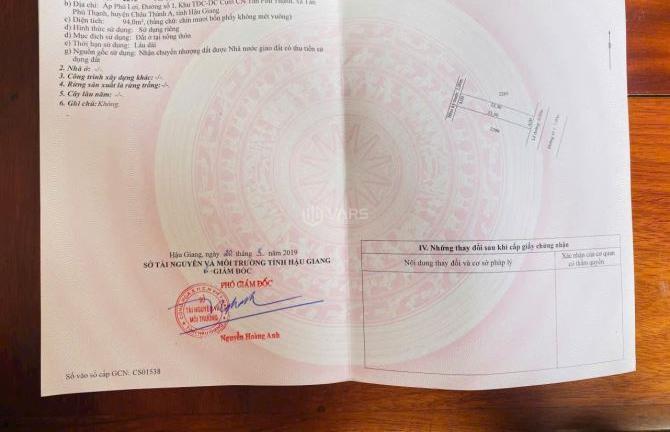 b) Địa chỉ: Ấp Phú Lợi, Đường số 1, Khu TĐC-DC Cụm CN Tân Phú Thạnh, xã Tân
Phú Thạnh, huyện Châu Thành A, tỉnh Hậu Giang
c) Diện tích: 94,0m², (bằng chữ: chín mươi bốn phẩy không mét vuông)
d) Hình thức sử dụng: Sử dụng riêng
đ) Mục đích sử dụng: Đất ở tại nông thôn
e) Thời hạn sử dụng: Lâu dài
g) Nguồn gốc sử dụng: Nhận chuyển nhượng đất được Nhà nước giao đất có thu tiền sử
dụng đất
2. Nhà ở: -/-
3. Công trình xây dựng khác: -/-
4. Rừng sản xuất là rừng trồng: -/-
5. Cây lâu năm: -/-
6. Ghi chú: Không.
VARS
Hậu Giang, ngày 20 tháng 5 năm 2019
SỞ TÀI NGUYÊN VÀ MÔI TRƯỜNG TỈNH HẬU GIANG
GIÁM ĐỐC
PHÓ GIÁM ĐỐC
SỞ
TÀI NGUYÊN VÀ
MÔI TRƯỜNG
Nguyễn Hoàng Anh
Số vào sổ cấp GCN: CS01538
IV. Những thay đổi sau khi cấp giấy chứng nhận
Nội dung thay đổi và cơ sở pháp lý
Xác nhận của cơ quan
có thẩm quyền